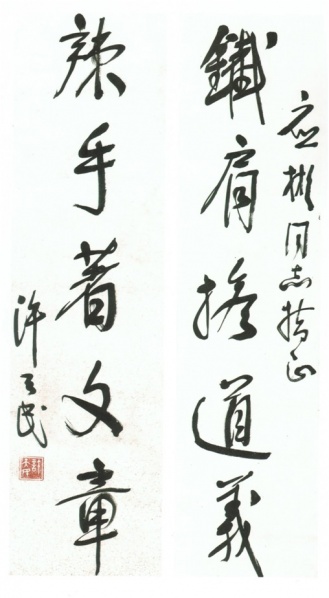 应彬同志指正
鐵肩擔道義
辣手著文章
许天民